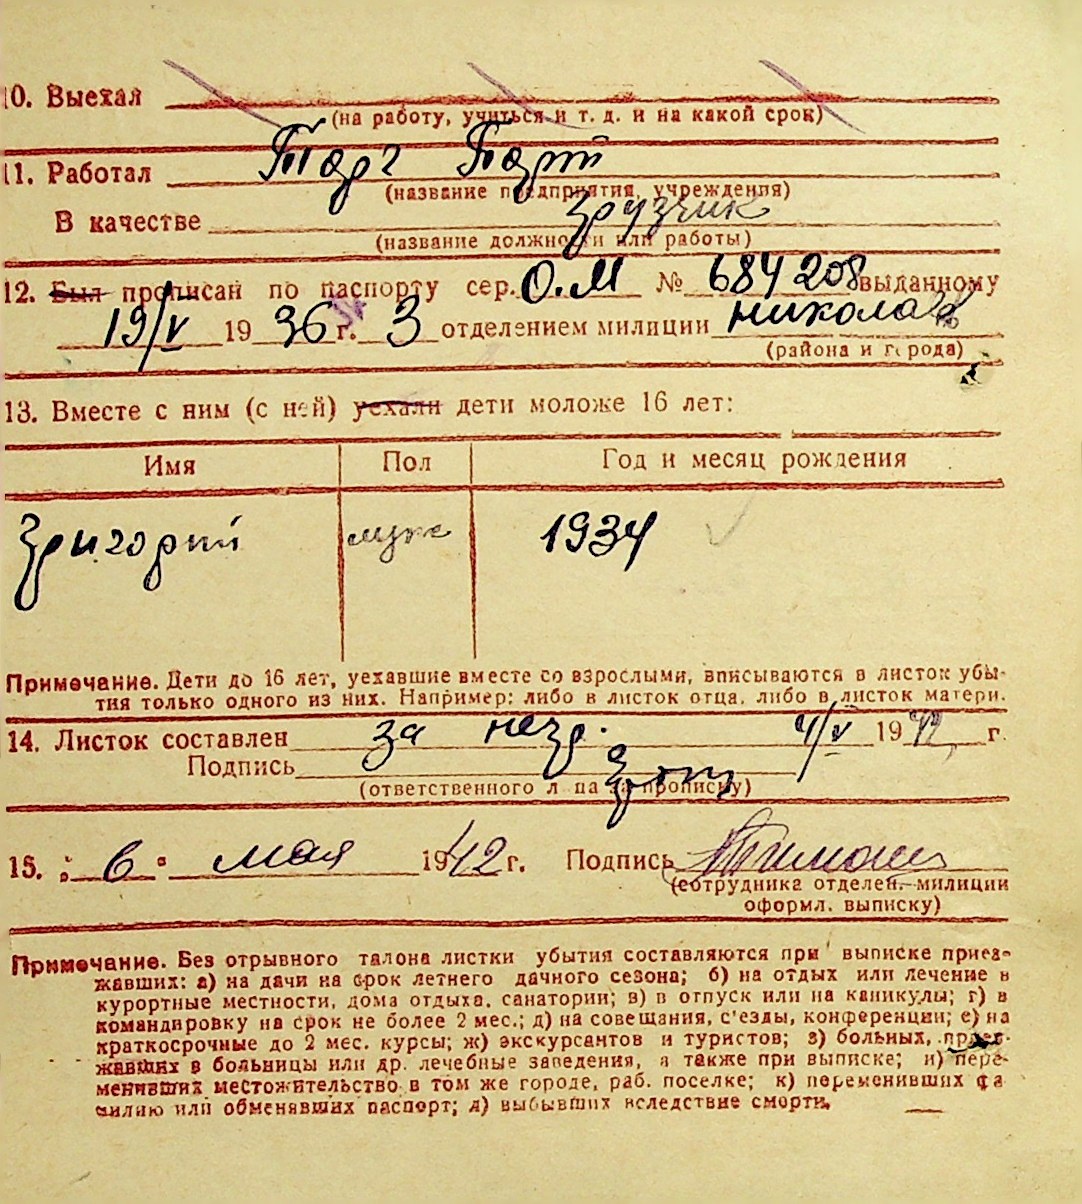 10. Выехал
(на работу, учиться и т. д. и на какой срок)
11. Работал Торг Порт
(название предприятия, учреждения)
В качестве грузчик
(название должности или работы)
12. Был прописан по паспорту сер. О.М № 684208 выданному
19/V 1936 г. 3 отделением милиции Николаев
(района и города)
13. Вместе с ним (с ней) уехали дети моложе 16 лет:
Имя Пол Год и месяц рождения
Григорий муж 1934
Примечание. Дети до 16 лет, уехавшие вместе со взрослыми, вписываются в листок убы-
тия только одного из них. Например: либо в листок отца, либо в листок матери.
14. Листок составлен за 4/V 1942 г.
Подпись
(ответственного лица за прописку)
15. „ 6 " мая 1942 г. Подпись
(сотрудника отделен. милиции
оформл. выписку)
Примечание. Без отрывного талона листки убытия составляются при выписке приез-
жавших: а) на дачи на срок летнего дачного сезона; б) на отдых или лечение в
курортные местности, дома отдыха, санатории; в) в отпуск или на каникулы; г) в
командировку на срок не более 2 мес.; д) на совещания, с'езды, конференции; е) на
краткосрочные до 2 мес. курсы; ж) экскурсантов и туристов; з) больных, приез-
жавших в больницы или др. лечебные заведения, а также при выписке; и) пере-
менивших местожительство в том же городе, раб. поселке; к) переменивших фа
милию или обменявших паспорт; л) выбывших вследствие смерти.